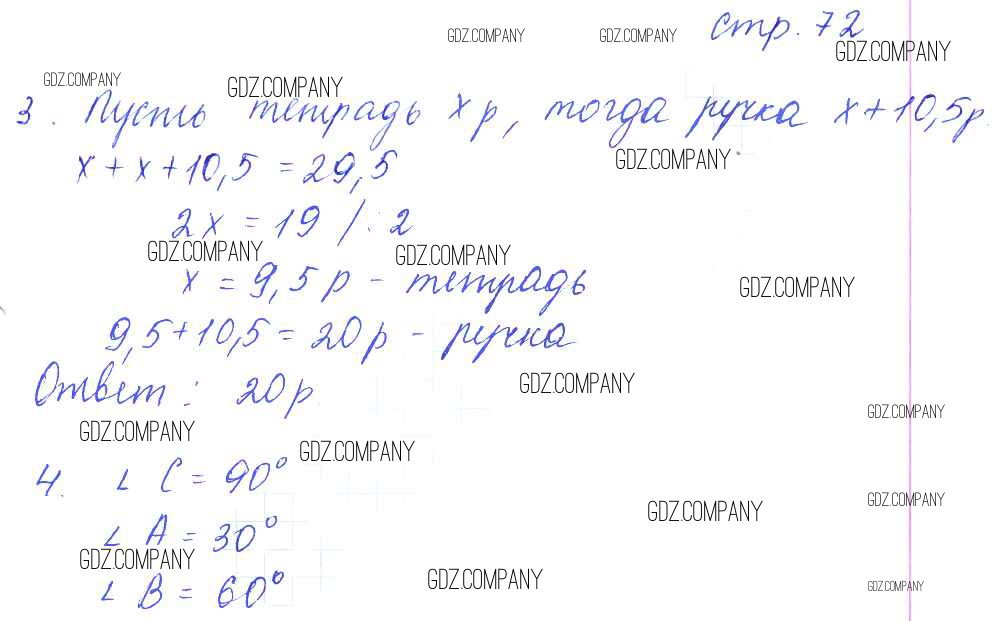 GDZ.COMPANY GDZ.COMPANY стр. 72
GDZ.COMPANY
GDZ.COMPANY GDZ.COMPANY
3. Пусть тетрадь x р, тогда ручка x+10,5р.
GDZ.COMPANY
x + x + 10,5 = 29,5
2x = 19 /: 2
GDZ.COMPANY GDZ.COMPANY
x = 9,5 р - тетрадь
GDZ.COMPANY
9,5+10,5 = 20р - ручка
GDZ.COMPANY
Ответ: 20р
GDZ.COMPANY
GDZ.COMPANY GDZ.COMPANY
4. ∠ C = 90°
GDZ.COMPANY
GDZ.COMPANY
∠ A = 30°
GDZ.COMPANY GDZ.COMPANY
GDZ.COMPANY
∠ B = 60°